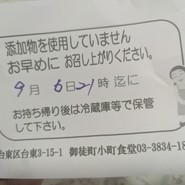 添加物を使用していません
お早めに お召し上がりください。
9月6日21時迄に
お持ち帰り後は冷蔵庫等で保管
して下さい。
台東区台東3-15-1 御徒町小町食堂03-3834-18